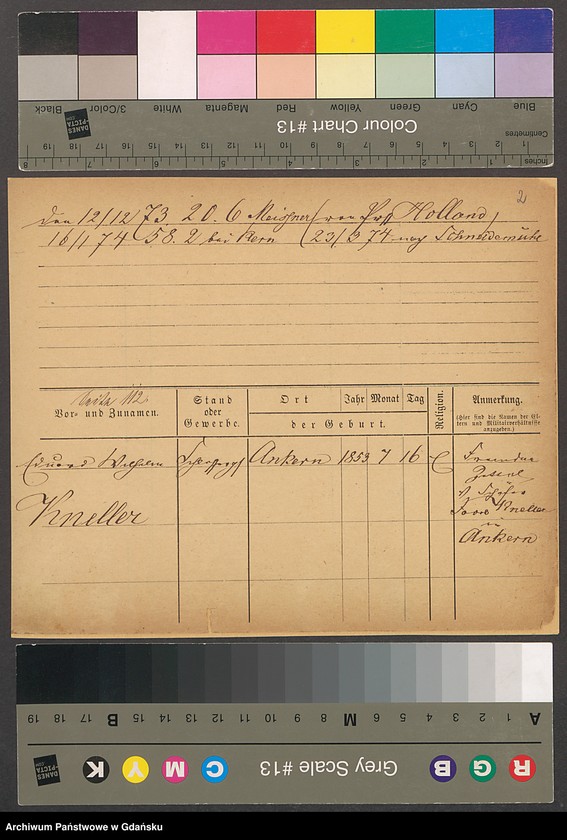 Black
3/Color
White
Magenta
Red
Yellow
Green
Cyan
Blue
DANES
PICTA
Colour Chart #13
Centimetres
19 18 17 16 15 14 13 12 11 10 9 8 7 6 5 4 3 2 1
8 7 6 5 4 3 2 1 Inches
2
den 12/12 73. 20. 6 Meissner (von Pr. Holland)
16/1 74 58. 2 bei Kern (23/3 74 nach Schneidemühl
112.
Vor- und Zunamen.
Stand
oder
Gewerbe.
Ort
Jahr
Monat
Tag
der Geburt.
Religion.
Anmerkung.
(Hier sind die Namen der El-
tern und Militairverhältnisse
anzugeben.)
Eduard Wilhelm
Kneller
Ankern
1853
7
16
E
Kneller
in
Ankern
19 18 17 B 16 15 14 13 12 11 10 9 8 M 7 6 5 4 3 2 1 A
DANES
PICTA
K Y M C
Grey Scale #13
B G R
Archiwum Państwowe w Gdańsku